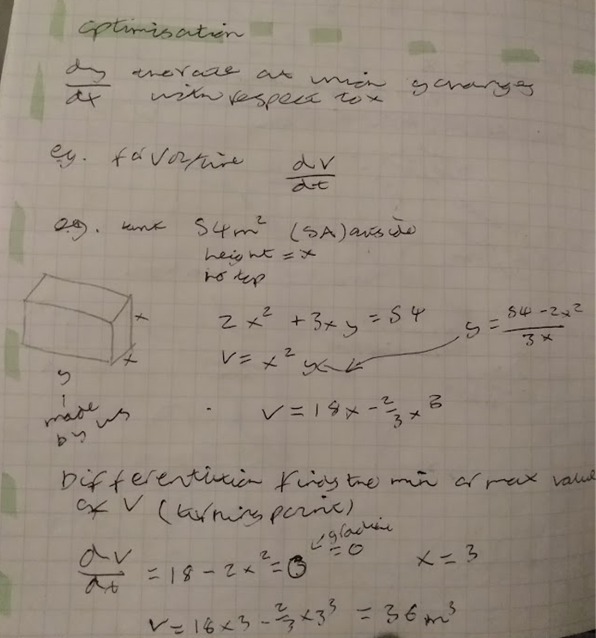 optimisation
dy/dx the rate at which y changes
with respect to x
eg. for V over time dV/dt
eg. tank 54m² (SA) outside
height = x
no top
2x² + 3xy = 54
y = (54 - 2x²)/3x
V = x²y
x
x
y
made
by us
V = 18x - 2/3 x³
Differentiation finds the min or max value
of V (turning point)
gradient
= 0
dV/dt = 18 - 2x² = 0
x = 3
V = 18×3 - 2/3 ×3³ = 36m³